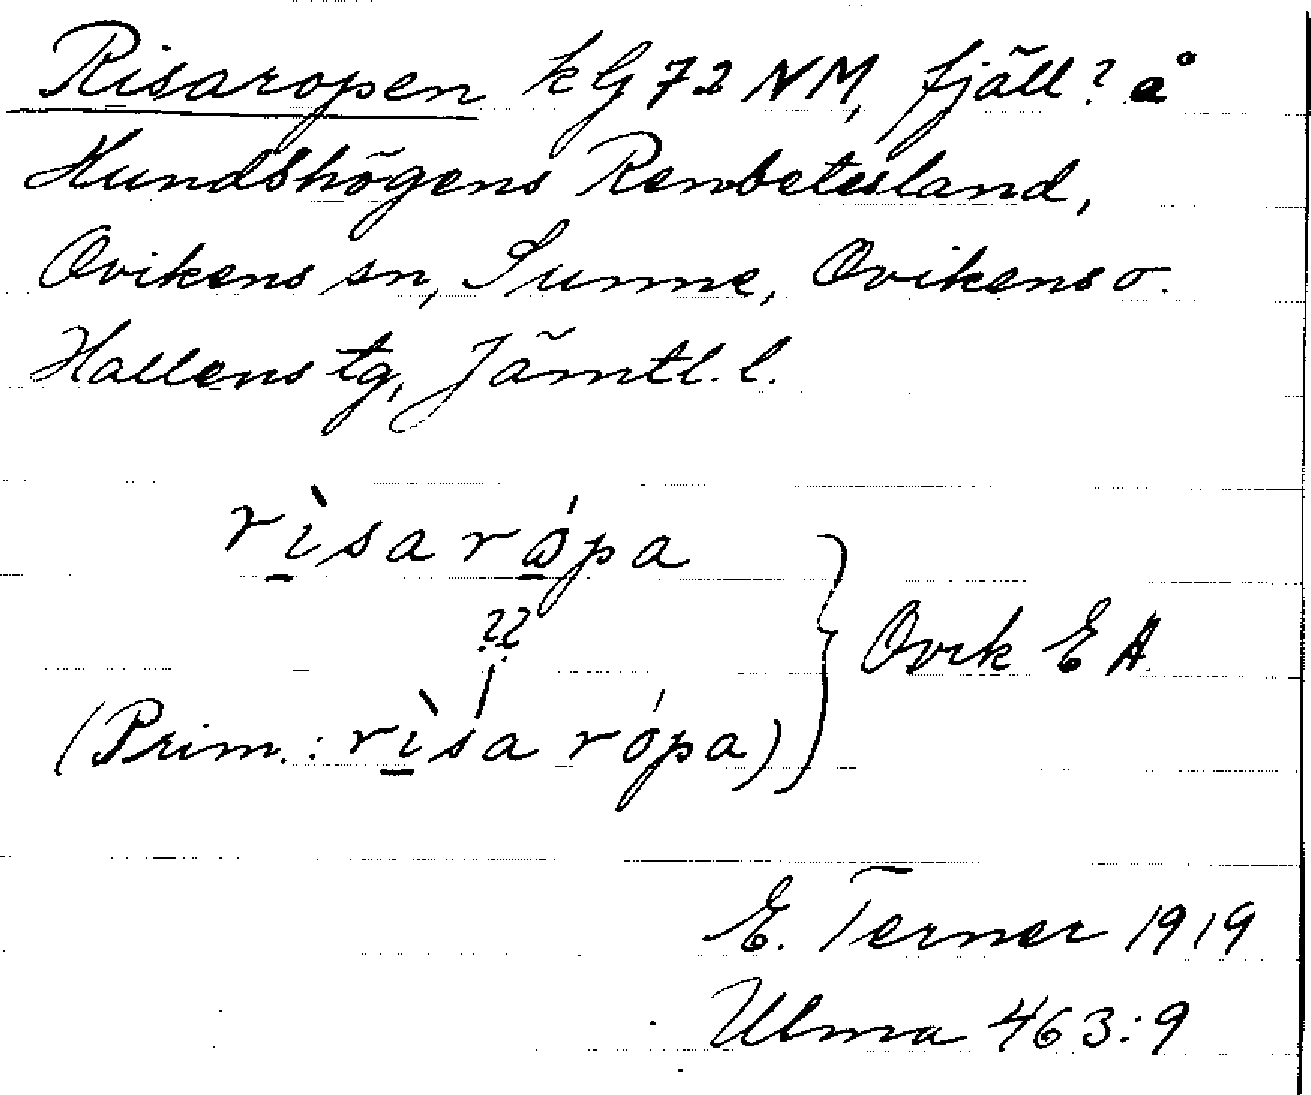 Risaropen kG 72 NM, fjäll? å
Hundshögens Renbetesland,
Ovikens sn, Sunne, Ovikens o.
Hallens tg, Jämtl. l.
rìsarópa
??
(Prim.: rìsa rópa)
Ovik EÄ
E. Terner 1919
Ulma 463:9